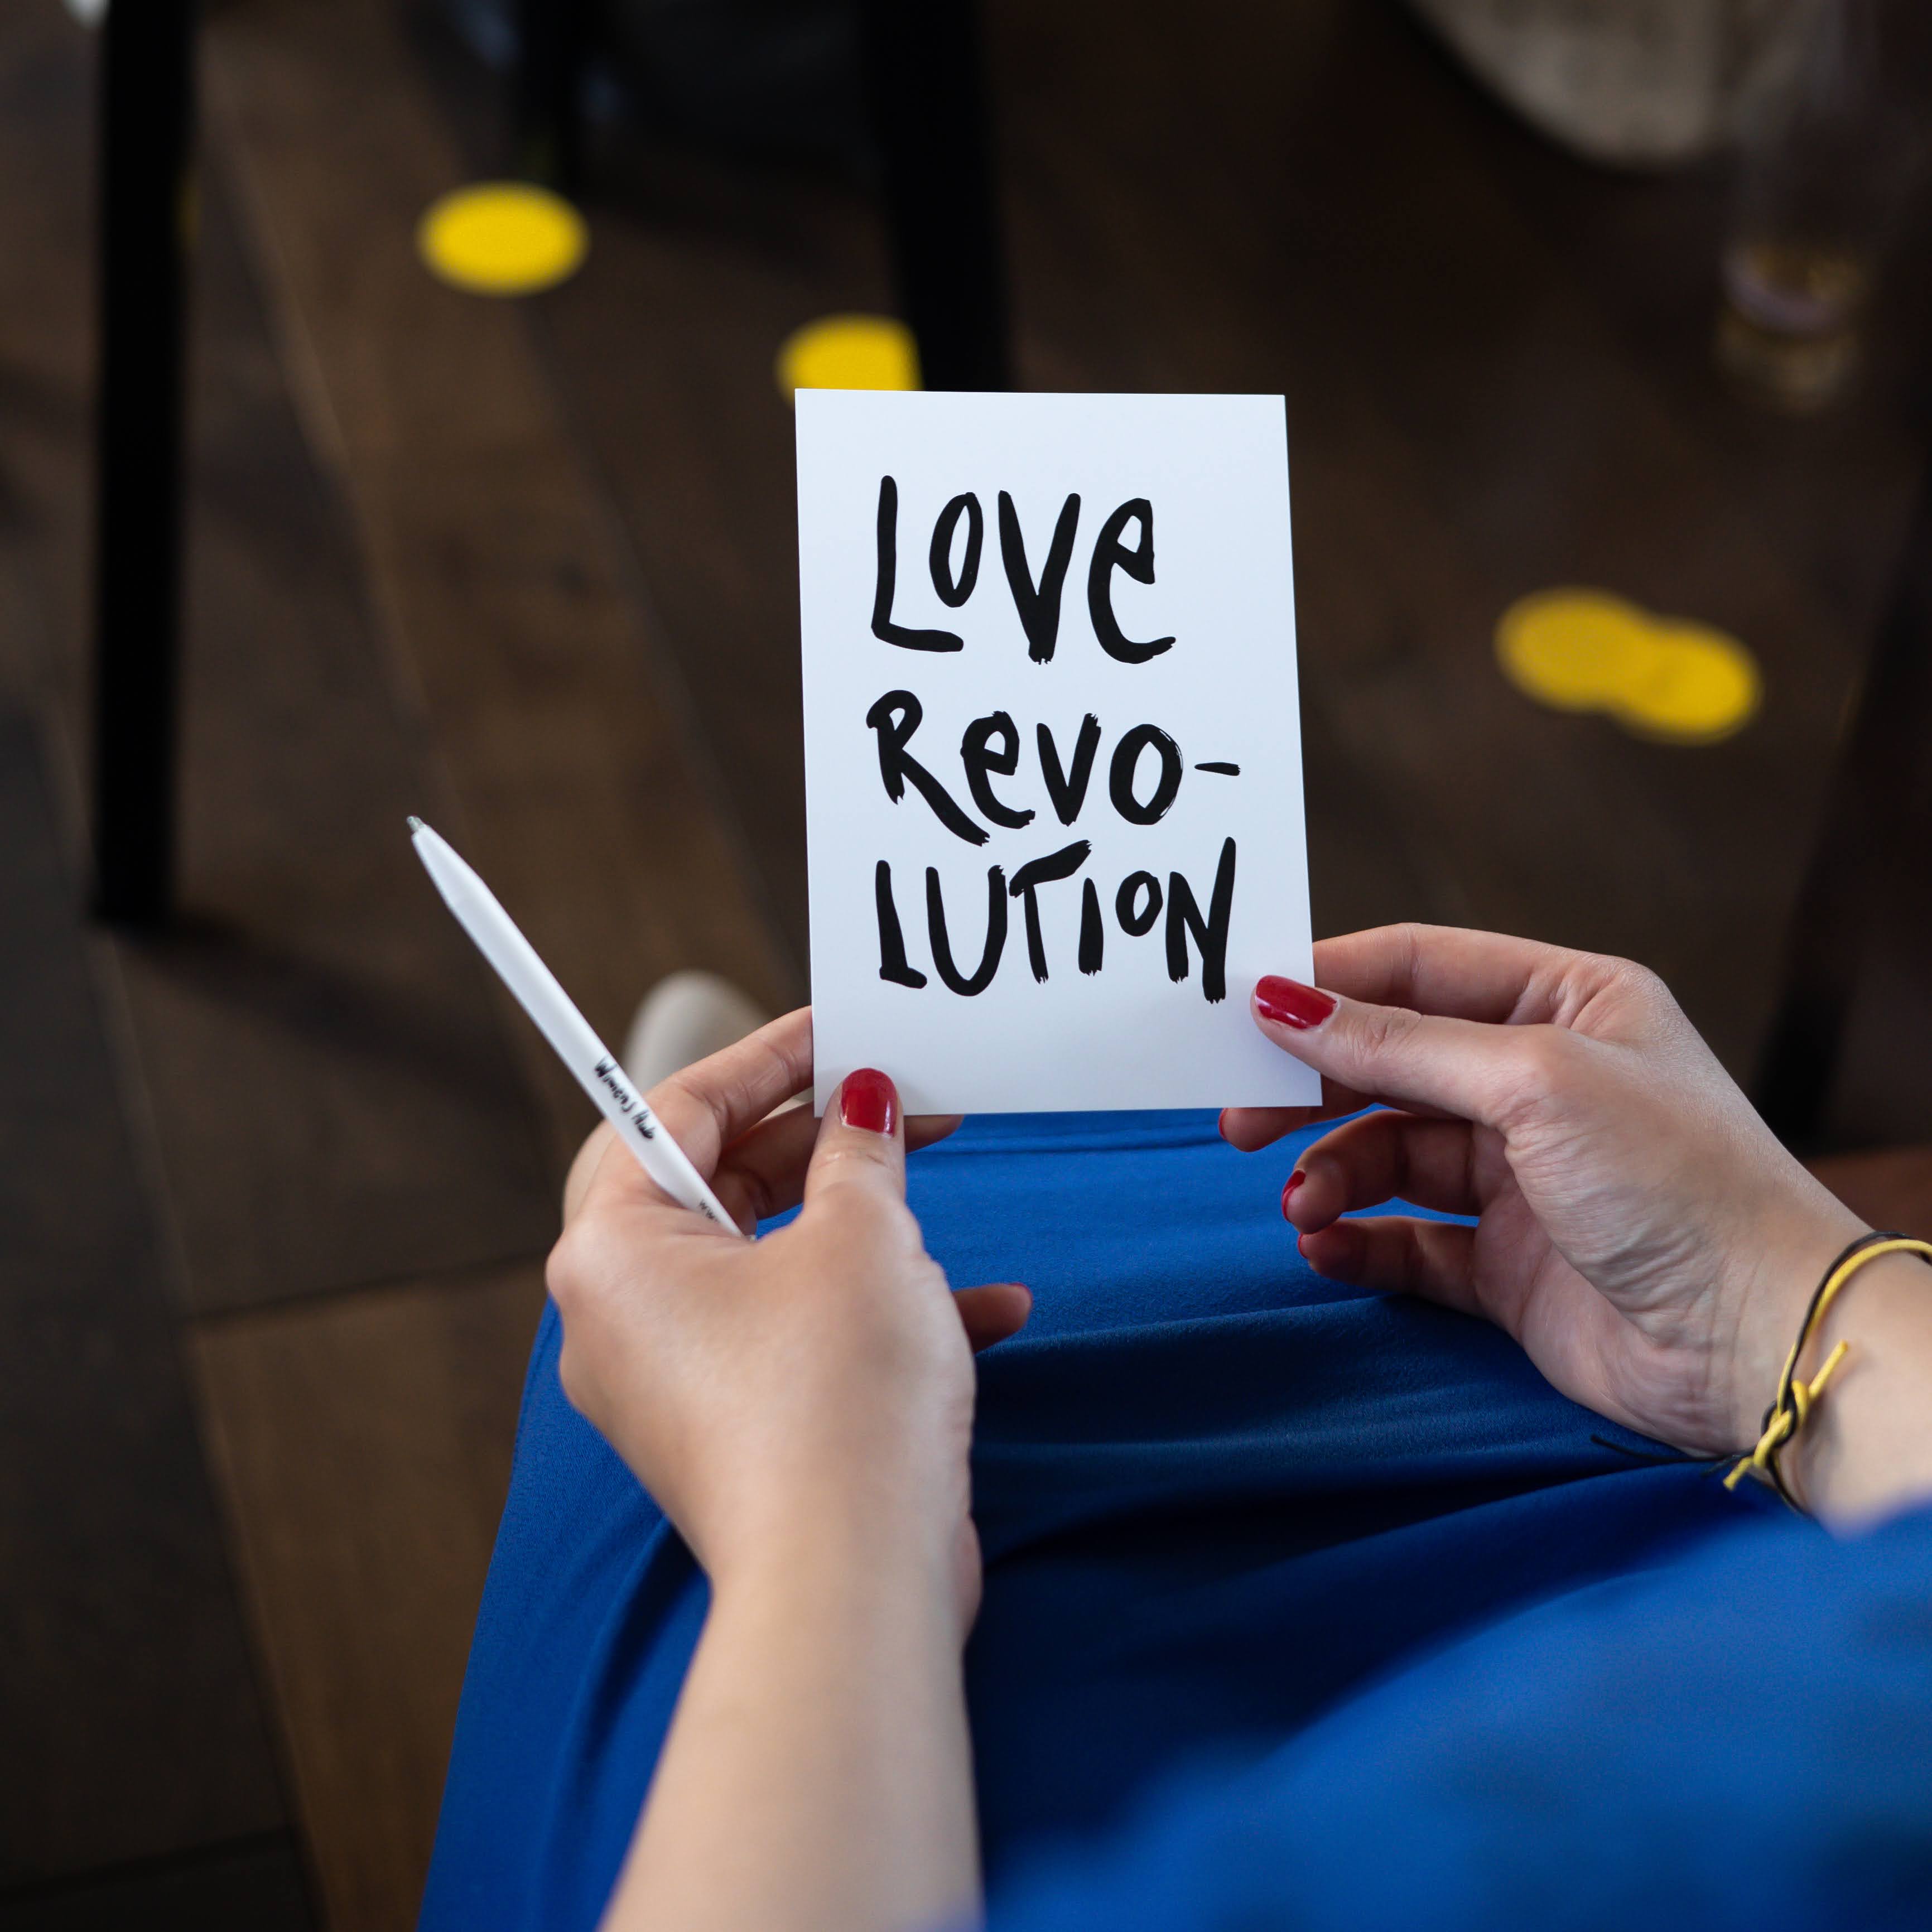 LOVe
Revo-
LUTION
Womens Hub